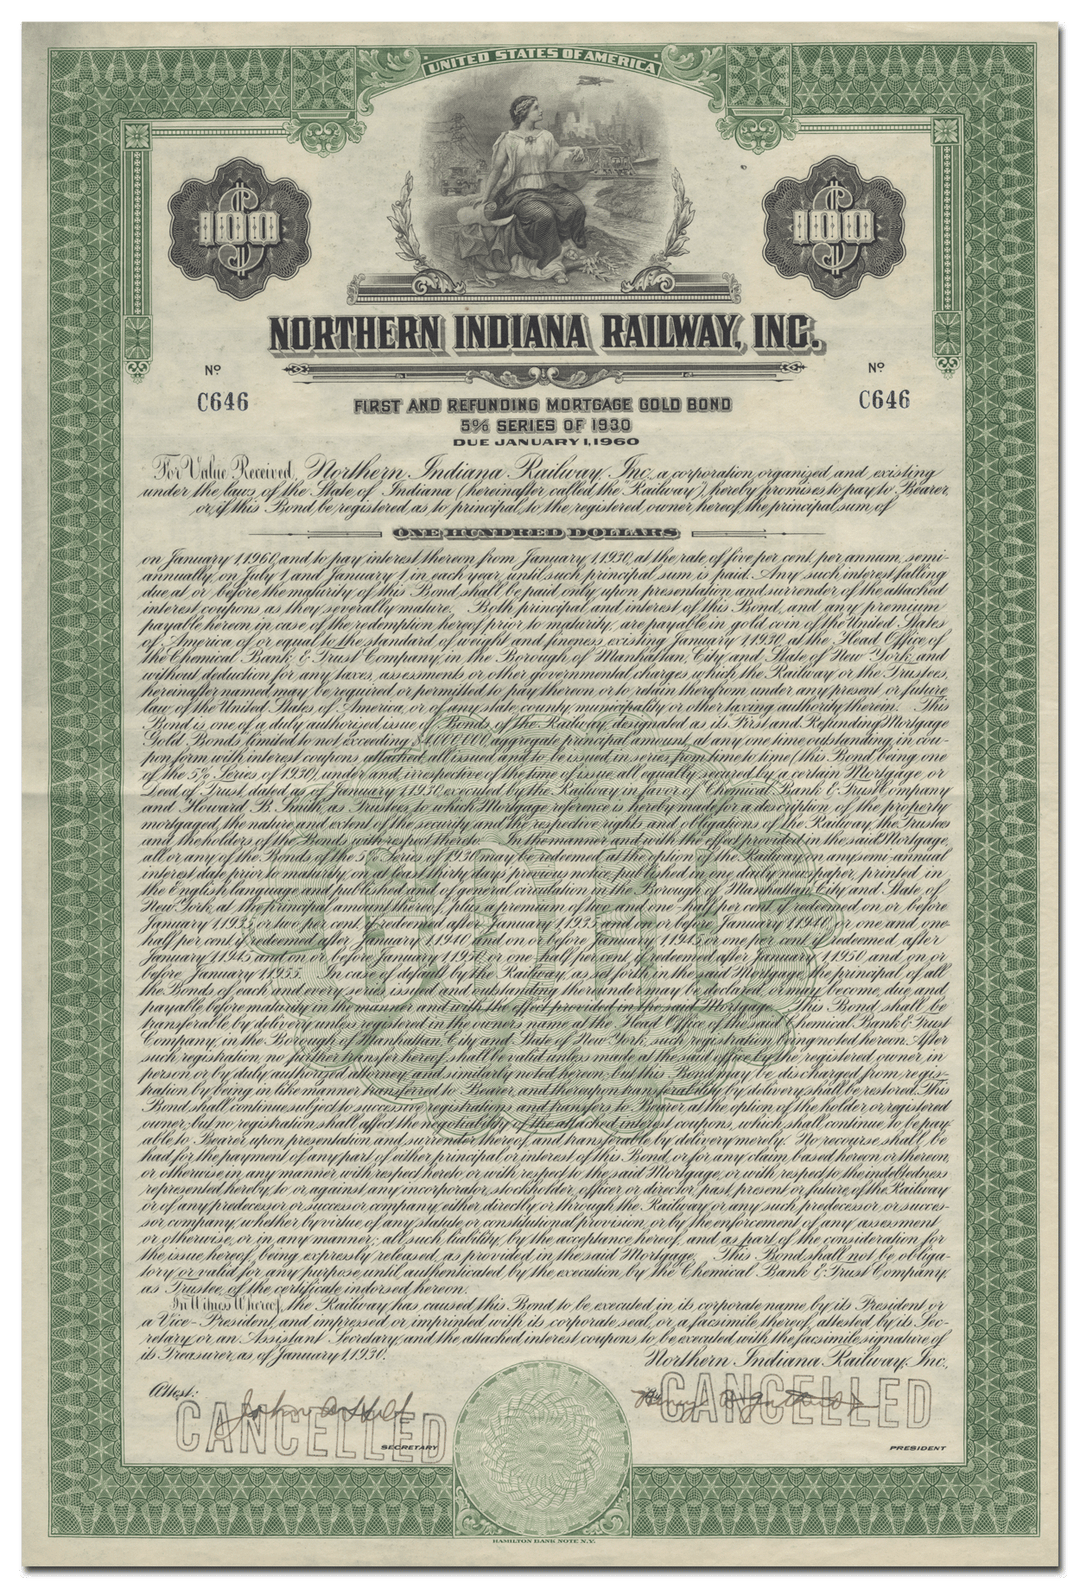 UNITED STATES OF AMERICA
$100
$100
NORTHERN INDIANA RAILWAY, INC.
Nº
C646
Nº
C646
FIRST AND REFUNDING MORTGAGE GOLD BOND
5% SERIES OF 1930
DUE JANUARY 1, 1960
For Value Received, Northern Indiana Railway, Inc., a corporation organized and existing
under the laws of the State of Indiana (hereinafter called the "Railway") hereby promises to pay to Bearer,
or, if this Bond be registered as to principal, to the registered owner hereof, the principal sum of
ONE HUNDRED DOLLARS
on January 1, 1960, and to pay interest thereon from January 1, 1930, at the rate of five per cent. per annum, semi-
annually, on July 1 and January 1, in each year, until such principal sum is paid. Any such interest falling
due at or before the maturity of this Bond shall be paid only upon presentation and surrender of the attached
interest coupons as they severally mature. Both principal and interest of this Bond, and any premium
payable hereon in case of the redemption hereof prior to maturity, are payable in gold coin of the United States
of America of or equal to the standard of weight and fineness existing January 1, 1930, at the Head Office of
the Chemical Bank & Trust Company, in the Borough of Manhattan, City and State of New York, and
without deduction for any taxes, assessments or other governmental charges which the Railway or the Trustees,
hereinafter named, may be required or permitted to pay thereon or to retain therefrom under any present or future
law of the United States of America, or of any state, county, municipality or other taxing authority therein. This
Bond is one of a duly authorized issue of Bonds of the Railway, designated as its First and Refunding Mortgage
Gold Bonds, limited to not exceeding $4,000,000, aggregate principal amount, at any one time outstanding, in cou-
pon form with interest coupons attached, all issued and to be issued in series, from time to time (this Bond being one
of the 5% Series of 1930), under and, irrespective of the time of issue, all equally secured by a certain Mortgage, or
Deed of Trust, dated as of January 1, 1930, executed by the Railway in favor of Chemical Bank & Trust Company
and Howard B. Smith, as Trustees, to which Mortgage reference is hereby made for a description of the property
mortgaged, the nature and extent of the security and the respective rights and obligations of the Railway, the Trustees
and the holders of the Bonds with respect thereto. In the manner and with the effect provided in the said Mortgage,
all or any of the Bonds of the 5% Series of 1930 may be redeemed at the option of the Railway on any semi-annual
interest date prior to maturity, on at least thirty days previous notice, published in one daily newspaper, printed in
the English language and published and of general circulation in the Borough of Manhattan, City and State of
New York, at the principal amount thereof, plus a premium of two and one-half per cent. if redeemed on or before
January 1, 1935, or two per cent. if redeemed after January 1, 1935 and on or before January 1, 1940, or one and one-
half per cent. if redeemed after January 1, 1940 and on or before January 1, 1945 or one per cent. if redeemed after
January 1, 1945 and on or before January 1, 1950 or one-half per cent. if redeemed after January 1, 1950 and on or
before January 1, 1955. In case of default by the Railway, as set forth in the said Mortgage, the principal of all
the Bonds of each and every series issued and outstanding thereunder may be declared, or may become, due and
payable before maturity in the manner and with the effect provided in the said Mortgage. This Bond shall be
transferable by delivery unless registered in the owner's name at the Head Office of the said Chemical Bank & Trust
Company, in the Borough of Manhattan, City and State of New York, such registration being noted hereon. After
such registration, no further transfer hereof shall be valid unless made at the said office by the registered owner, in
person or by duly authorized attorney and similarly noted hereon; but this Bond may be discharged from regis-
tration by being in like manner transferred to Bearer, and thereupon transferability by delivery shall be restored. This
Bond shall continue subject to successive registrations and transfers to Bearer at the option of the holder or registered
owner; but no registration shall affect the negotiability of the attached interest coupons, which shall continue to be pay-
able to Bearer upon presentation and surrender thereof, and transferable by delivery merely. No recourse shall be
had for the payment of any part of either principal or interest of this Bond, or for any claim based hereon or thereon,
or otherwise in any manner with respect hereto or with respect to the said Mortgage, or with respect to the indebtedness
represented hereby, to or against any incorporator, stockholder, officer or director, past, present or future, of the Railway
or of any predecessor or successor company, either directly or through the Railway or any such predecessor or succes-
sor company, whether by virtue of any statute or constitutional provision, or by the enforcement of any assessment
or otherwise, or in any manner; all such liability, by the acceptance hereof, and as part of the consideration for
the issue hereof, being expressly released, as provided in the said Mortgage. This Bond shall not be obliga-
tory or valid for any purpose until authenticated by the execution by the Chemical Bank & Trust Company,
as Trustee, of the certificate indorsed hereon.
In Witness Whereof, the Railway has caused this Bond to be executed in its corporate name by its President or
a Vice-President, and impressed or imprinted with its corporate seal, or a facsimile thereof, attested by its Sec-
retary or an Assistant Secretary, and the attached interest coupons to be executed with the facsimile signature of
its Treasurer, as of January 1, 1930.
Northern Indiana Railway, Inc.,
Attest:
CANCELLED
CANCELLED
SECRETARY
PRESIDENT
HAMILTON BANK NOTE N.Y.